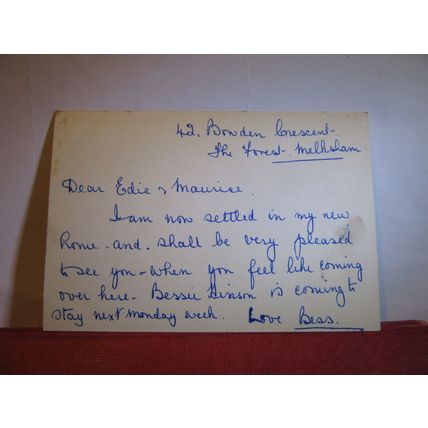 42. Bowden Crescent-
The Forest. Melksham
Dear Edie & Maurice.
I am now settled in my new
home - and - shall be very pleased
to see you - when you feel like coming
over here - Bessie Hinson is coming to
stay next Monday week. Love Bess.